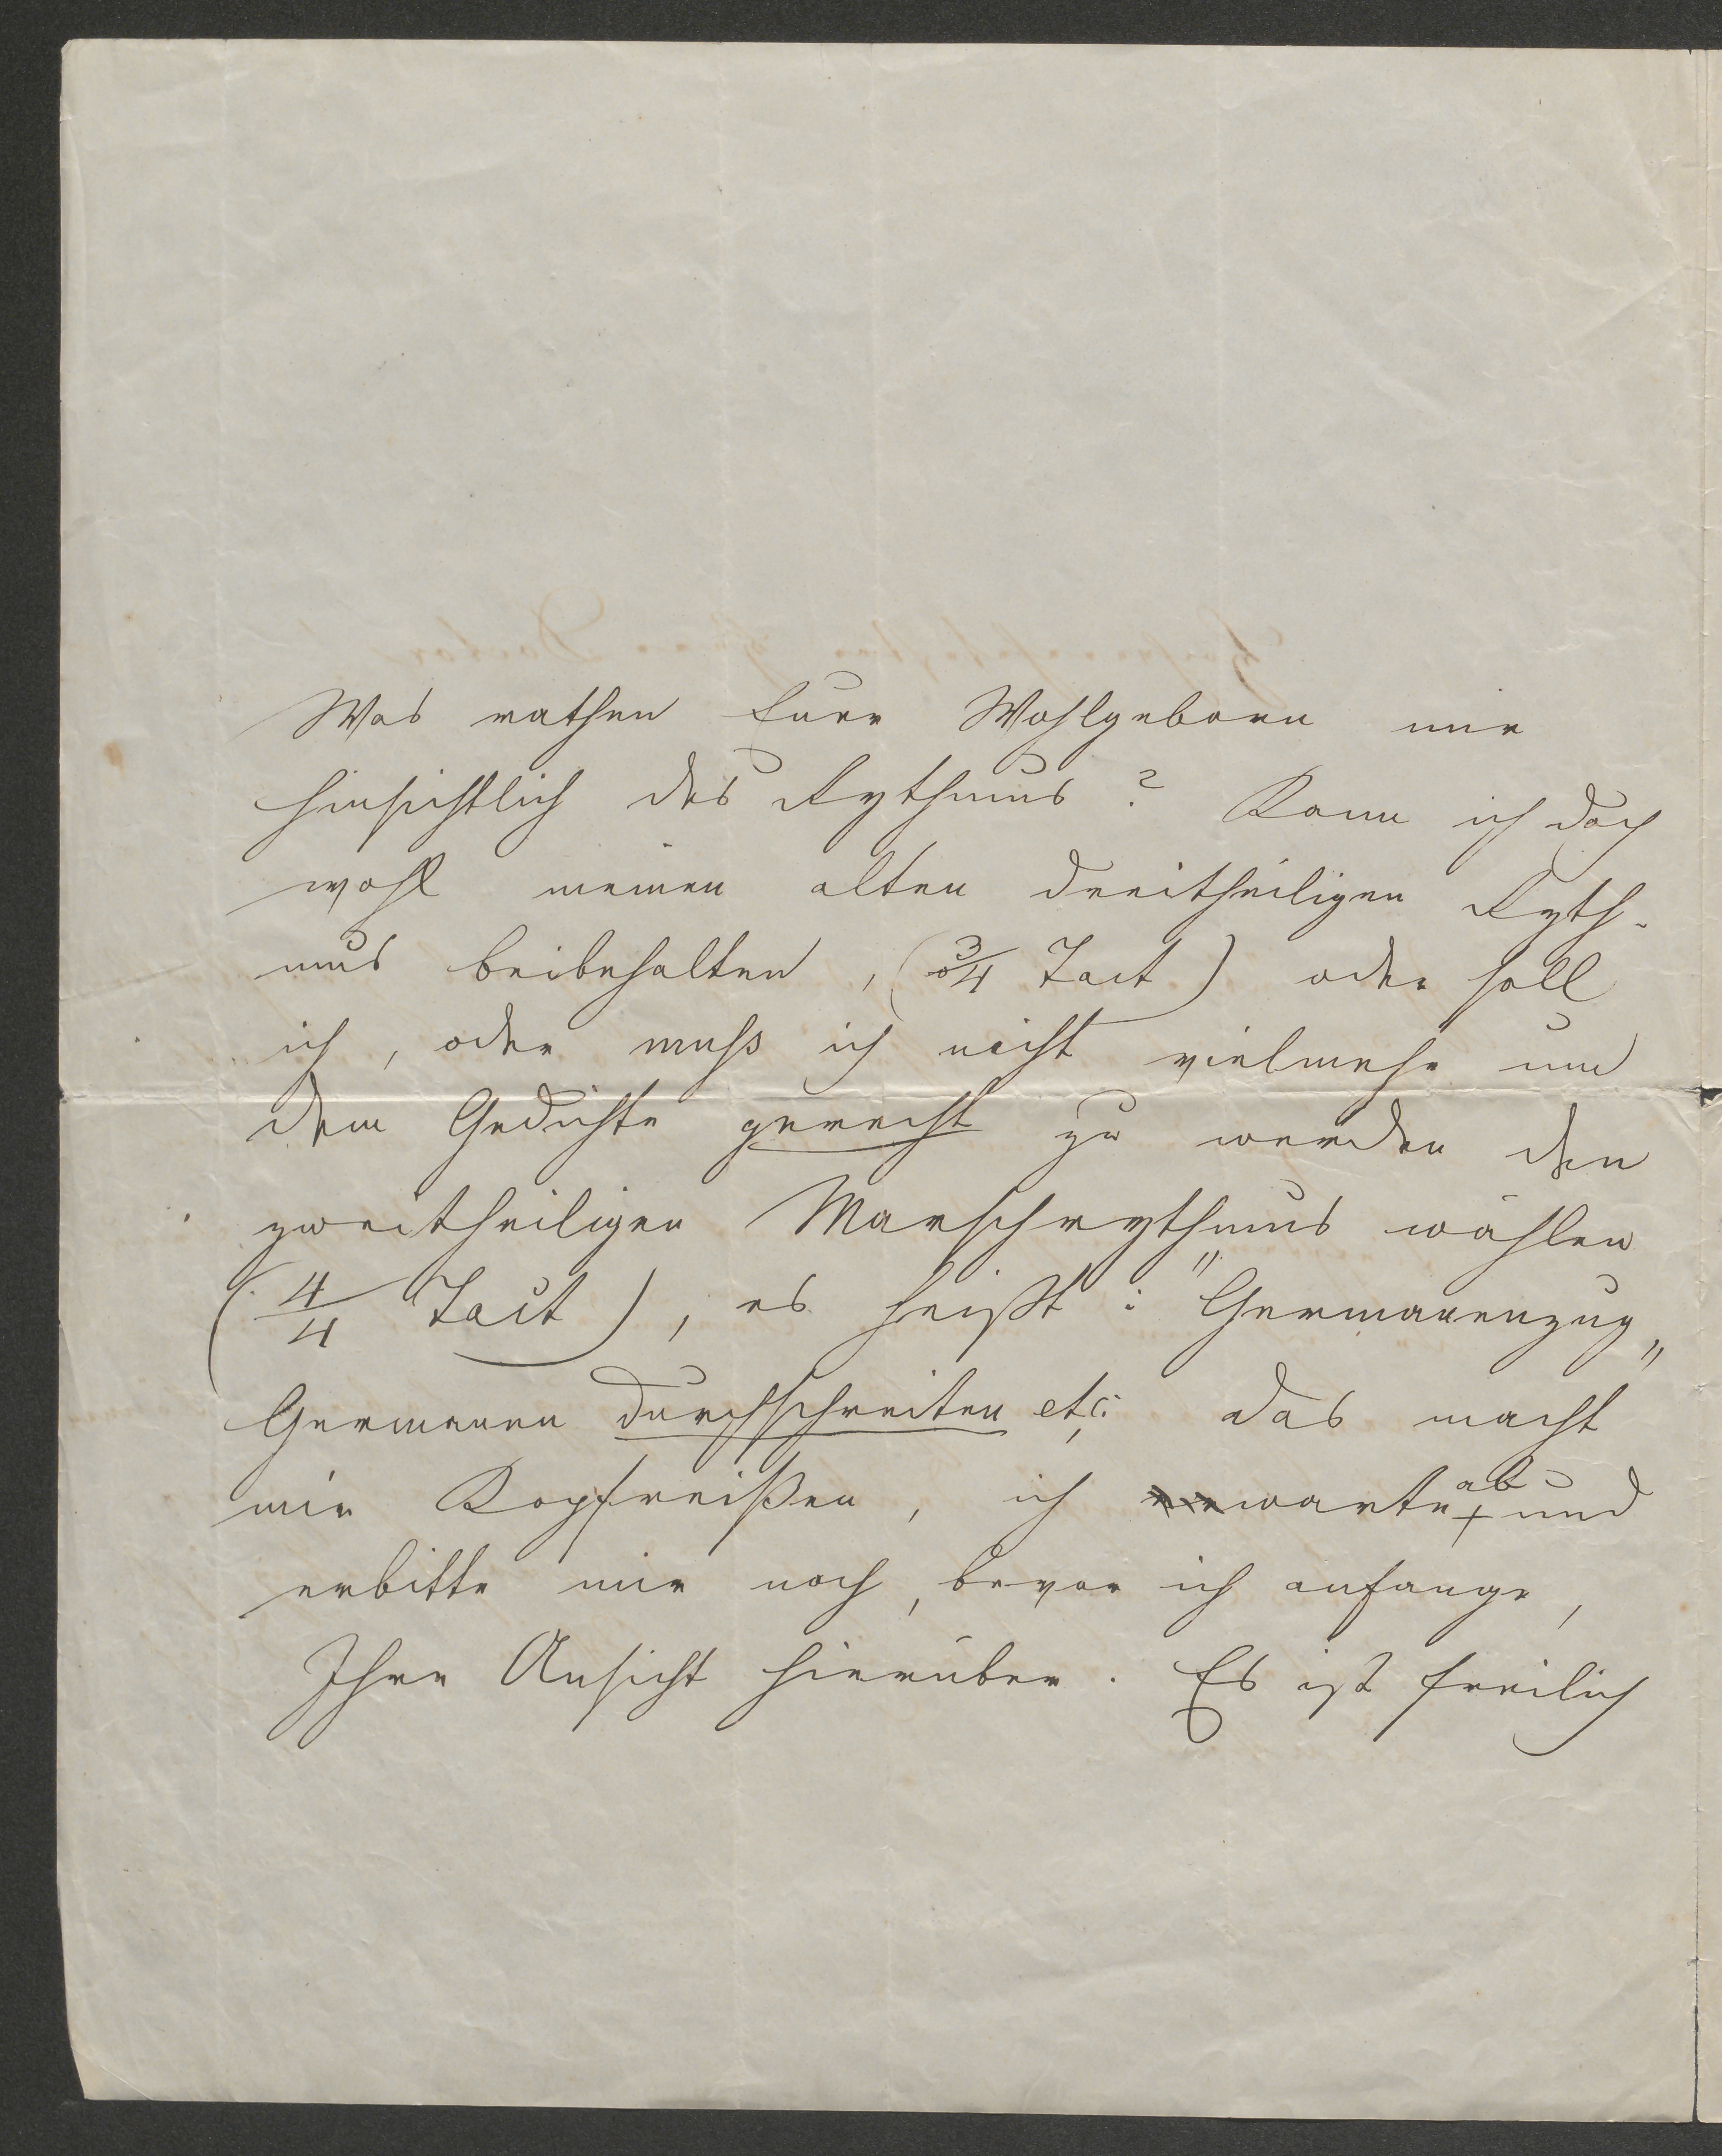 Was rathen Euer Wohlgeboren mir
hinsichtlich des Rythmus? Kann ich doch
wohl meinen alten dreitheiligen Ryth-
mus beibehalten, (3/4 Tact) oder soll
ich, oder muß ich nicht vielmehr um
dem Gedichte gerecht zu werden den
zweitheiligen Marschrythmus wählen
(4/4 Tact), es heißt: "Germanenzug"
Germanen durchschreiten etc: das macht
mir Kopfreißen, ich warte ab und
erbitte mir noch, bevor ich anfange,
Ihre Ansicht hierüber. Es ist freilich